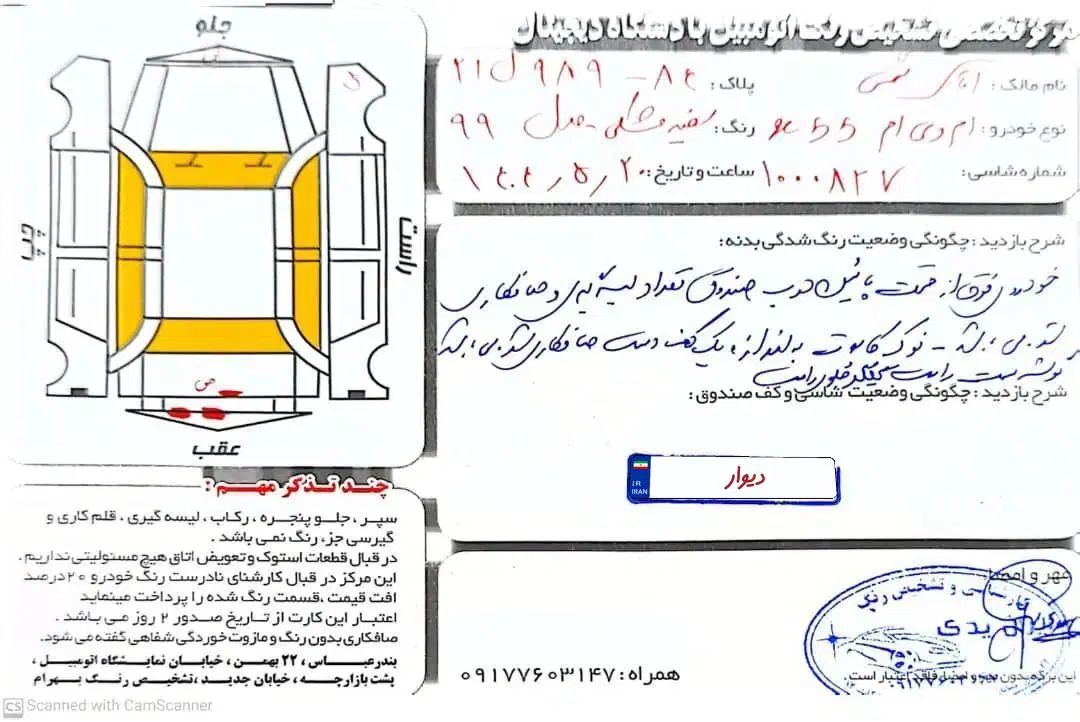 مرکز تخصصی تشخیص رنگ اتومبیل با دستگاه دیجیتال
نام مالک:
پلاک: ۲۱ ل ۹۸۹ - ۸۴
نوع خودرو: ام وی ام
رنگ: سفید مشکی - مدل ۹۹
شماره شاسی: ۱۰۰۰۸۲۷
ساعت و تاریخ:
شرح بازدید: چگونگی وضعیت رنگ شدگی بدنه:
خودروی فوق از قسمت پائین درب صندوق تعداد لیسه ای و صافکاری
شده می باشد - نوک کاپوت به اندازه یک کف دست صافکاری شده می باشد
گوشه سمت راست گلگیر جلو راست
شرح بازدید: چگونگی وضعیت شاسی و کف صندوق:
I R
IRAN
دیوار
مهر و امضاء:
کارشناسی و تشخیص رنگ
این برگه بدون مهر و امضا فاقد اعتبار است.
همراه: ۰۹۱۷۷۶۰۳۱۴۷
جلو
چپ
راست
ص
عقب
چند تذکر مهم:
سپر، جلو پنجره، رکاب، لیسه گیری، قلم کاری و
گیرسی جز، رنگ نمی باشد.
در قبال قطعات استوک و تعویض اتاق هیچ مسئولیتی نداریم.
این مرکز در قبال کارشنای نادرست رنگ خودرو ۲۰درصد
افت قیمت ،قسمت رنگ شده را پرداخت مینماید
اعتبار این کارت از تاریخ صدور ۲ روز می باشد.
صافکاری بدون رنگ و مازوت خوردگی شفاهی گفته می شود.
بندرعباس، ۲۲ بهمن، خیابان نمایشگاه اتومبیل،
پشت بازارچه، خیابان جدید، تشخیص رنگ بهرام
CS Scanned with CamScanner